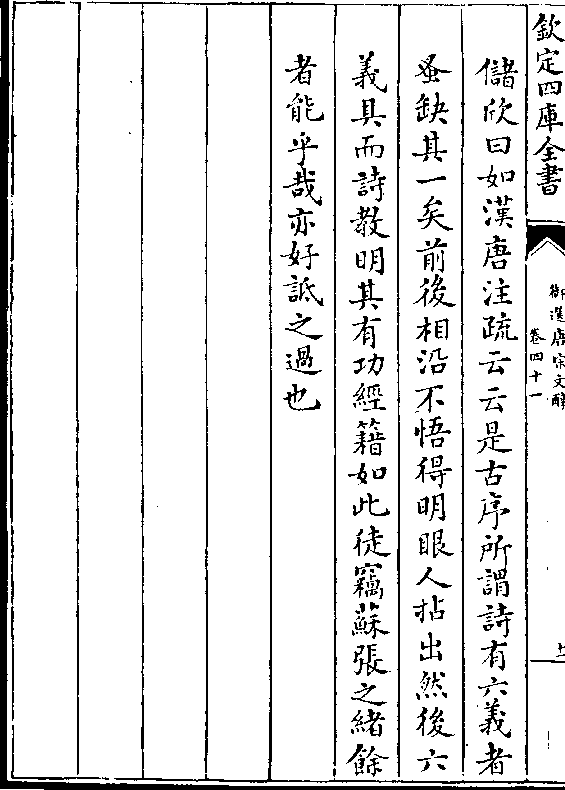 欽定四庫全書
御選唐宋文醇
卷四十一
儲欣曰如漢唐注疏云云是古序所謂詩有六義者
蚤缺其一矣前後相沿不悟得明眼人拈出然後六
義具而詩教明其有功經籍如此徒竊蘇張之緒餘
者能乎哉亦好詆之過也